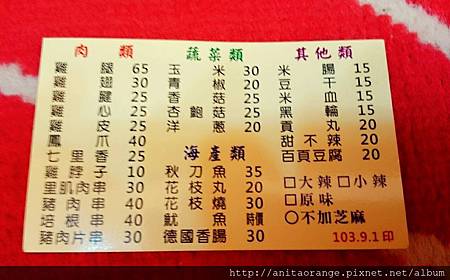 肉類
雞腿 65
雞翅 30
雞腱 25
雞心 25
雞皮 25
鳳爪 40
七里香 25
雞脖子 10
里肌肉串 30
豬肉串 40
培根串 40
豬肉片串 30
蔬菜類
玉米 30
青椒 20
香菇 25
杏鮑菇 25
洋蔥 20
海產類
秋刀魚 35
花枝丸 20
花枝燒 30
魷魚 時價
德國香腸 30
其他類
米腸 15
豆干 15
米血 15
黑輪 15
貢丸 20
甜不辣 20
百頁豆腐 20
□大辣□小辣
□原味
○不加芝麻
103.9.1 印
http://anitaorange.pixnet.net/album